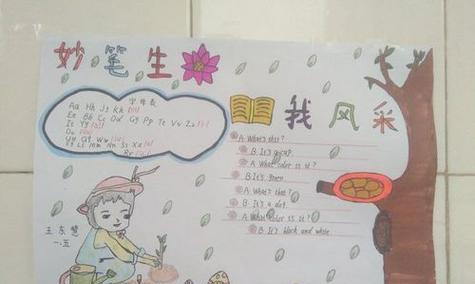 妙笔生
我风采
字母表
Aa Hh Jj Kk
Ee Bb Cc Dd Gg Pp Tt Vv Zz
Ii Yy
Oo
Uu Qq Ww
Ff Ll Mm Nn Ss Xx
Rr
A: What's this?
B: It's
A: What color is it?
B: It's green.
A: What's this?
B: It's a
A: What color is it?
B: It's black and white.
王东慧
一.五